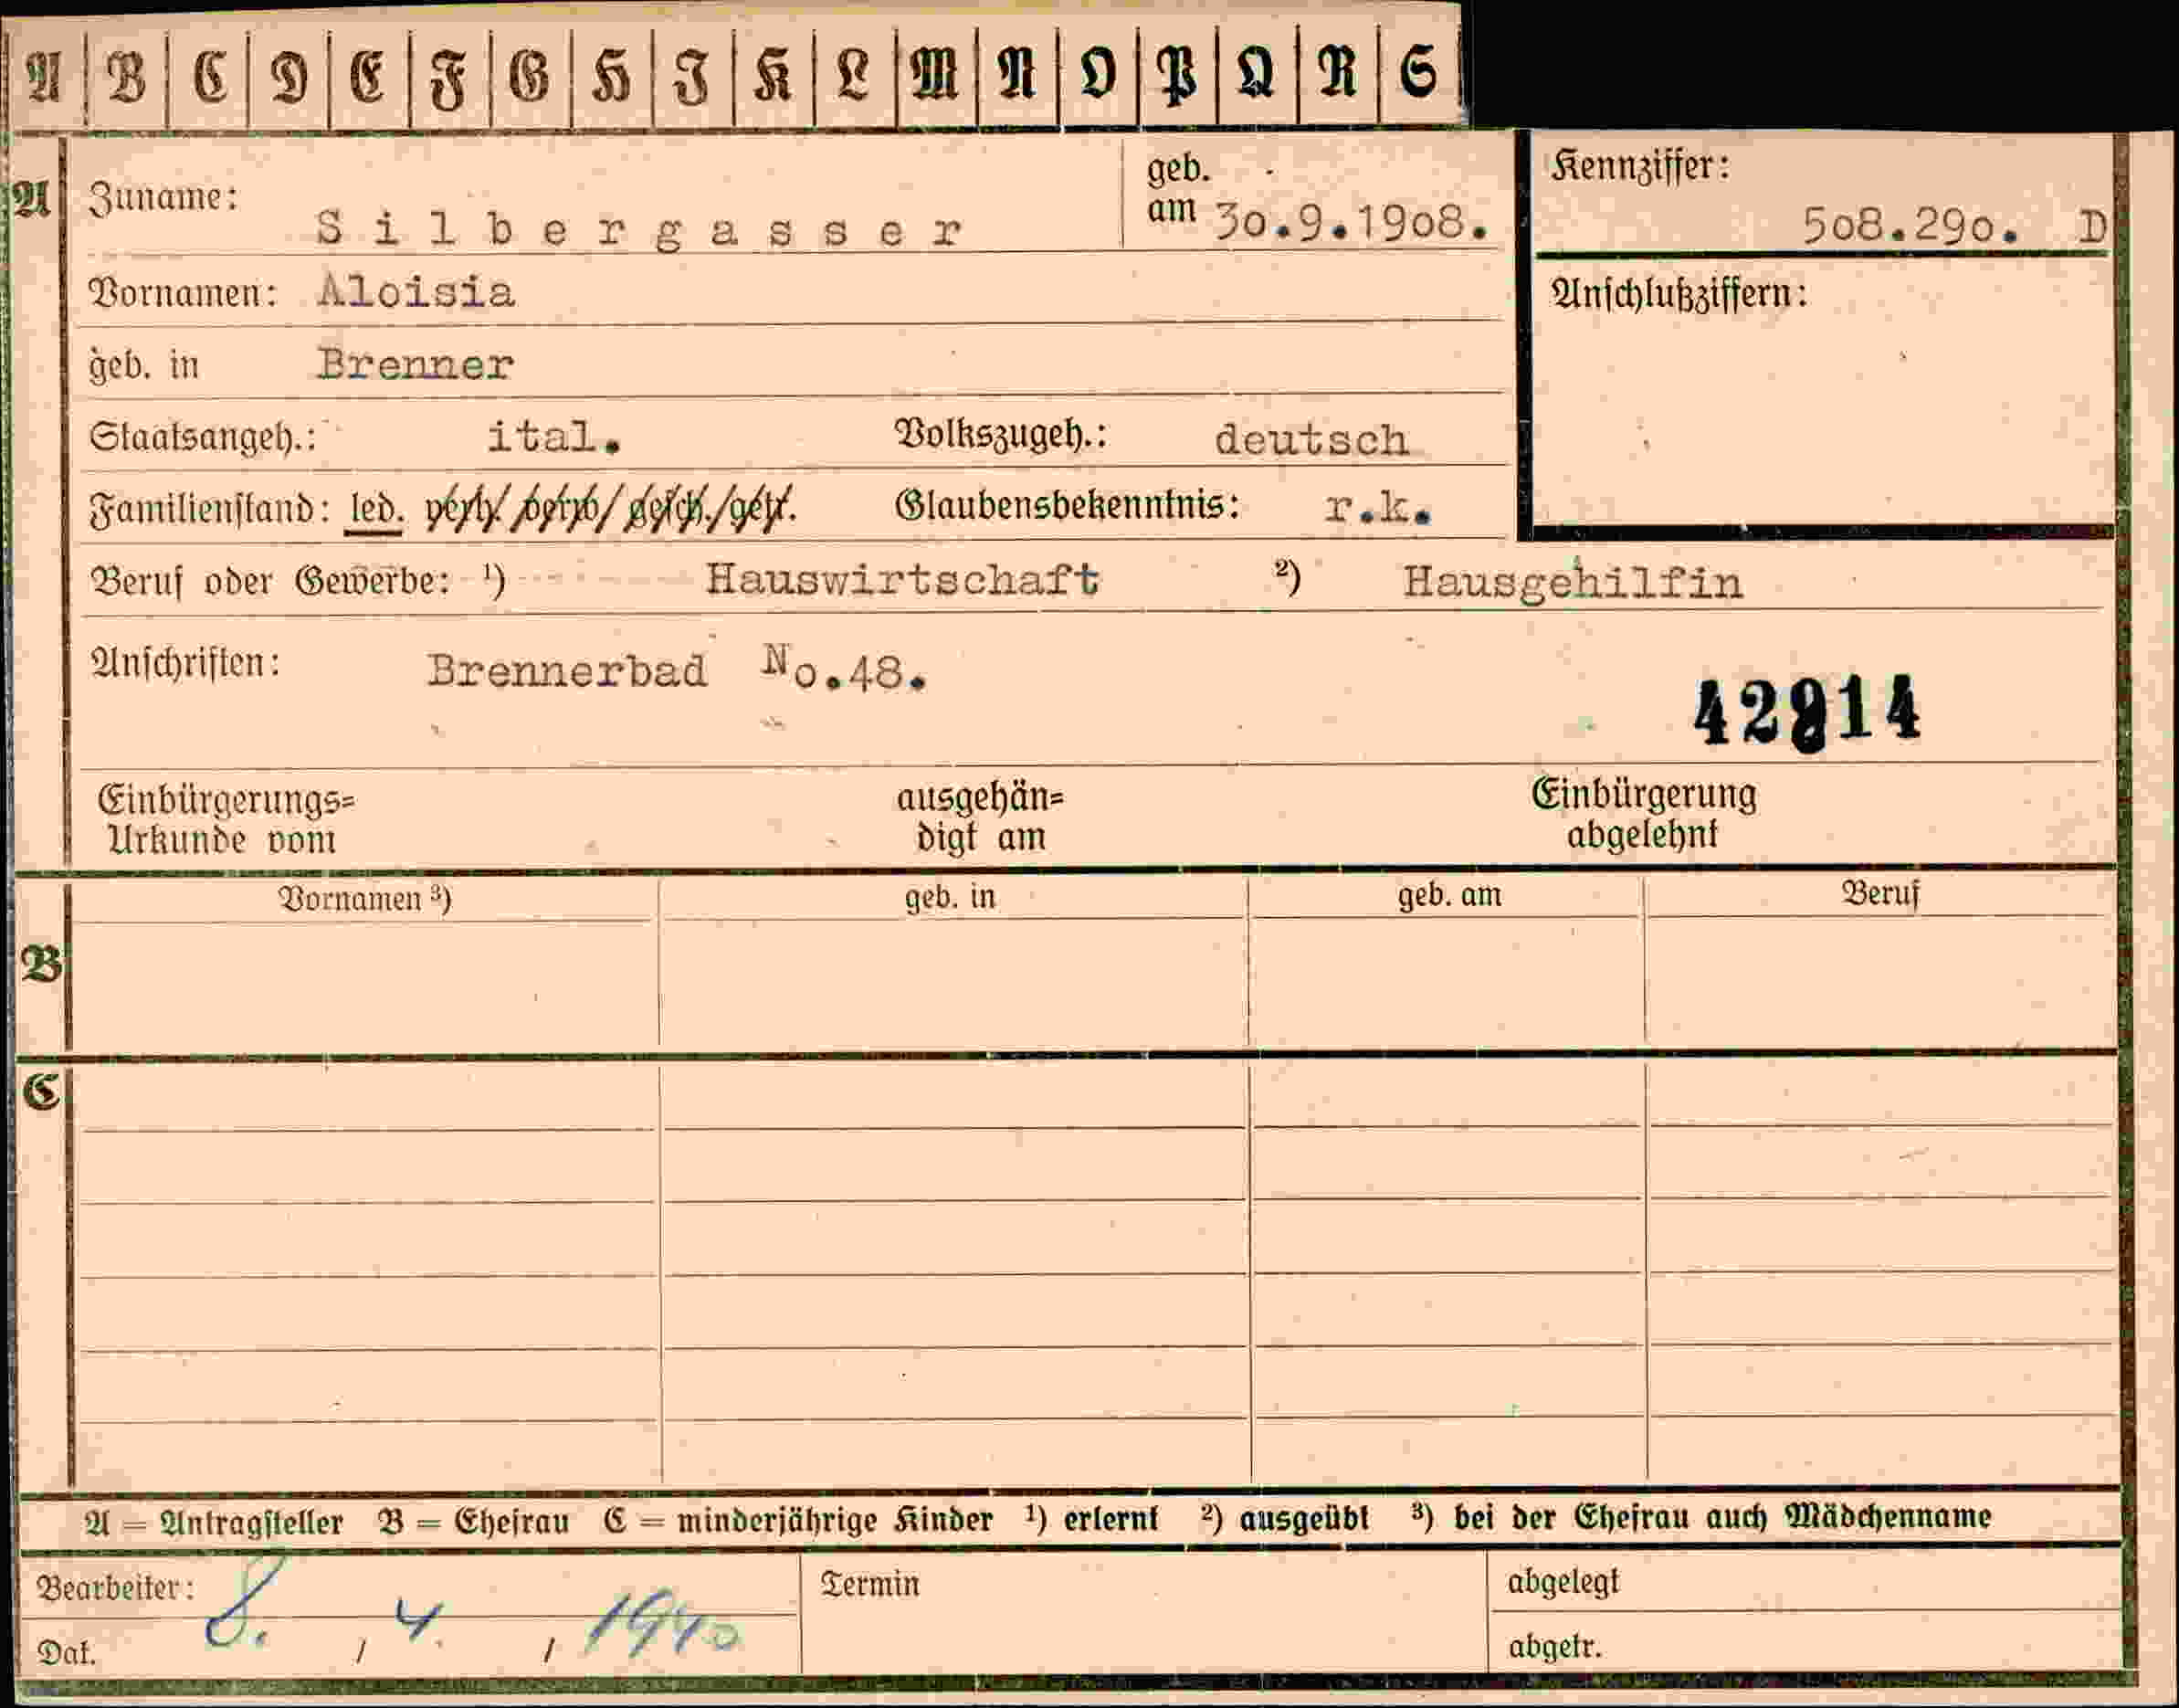 A B C D E F G H I K L M N O P Q R S
A Zuname: Silbergasser geb. am 30.9.1908. Kennziffer: 508.290. D
Vornamen: Aloisia Anschlußziffern:
geb. in Brenner
Staatsangeh.: ital. Volkszugeh.: deutsch
Familienstand: led. verh./verw/gesch./getr. Glaubensbekenntnis: r.k.
Beruf oder Gewerbe: ¹) Hauswirtschaft ²) Hausgehilfin
Anschriften: Brennerbad No.48.
42914
Einbürgerungs= ausgehän= Einbürgerung
Urkunde vom digt am abgelehnt
Vornamen ³) geb. in geb. am Beruf
B
C
A = Antragsteller B = Ehefrau C = minderjährige Kinder ¹) erlernt ²) ausgeübt ³) bei der Ehefrau auch Mädchenname
Bearbeiter: Termin abgelegt
Dat. 8. / 4. / 1940 abgetr.